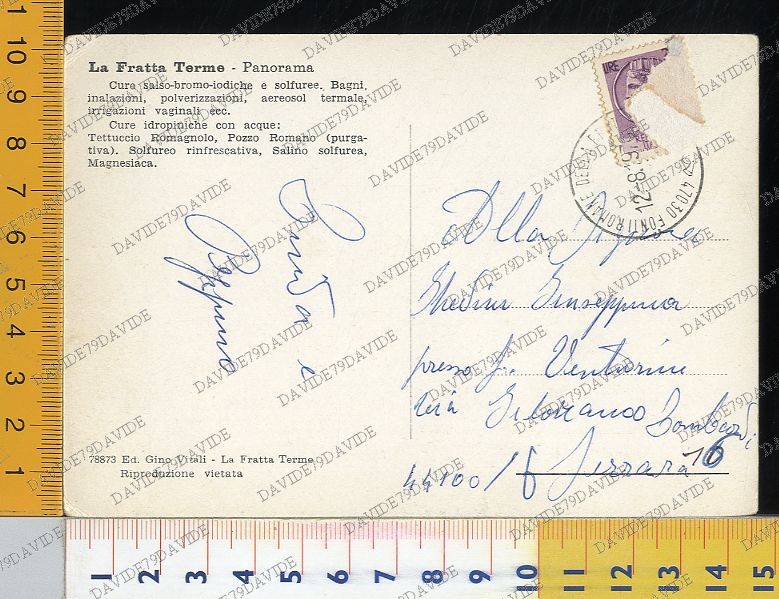 La Fratta Terme - Panorama
Cure salso-bromo-iodiche e solfuree. Bagni,
inalazioni, polverizzazioni, aereosol termale,
irrigazioni vaginali ecc.
Cure idropiniche con acque:
Tettuccio Romagnolo, Pozzo Romano (purga-
tiva). Solfureo rinfrescativa, Salino solfurea,
Magnesiaca.
LIRE
47030 FONTI ROMANE DELLA
12-8
Peppino
Alla Signora
Giuseppina
presso Venturini
Via Lombardi
16
44100 Ferrara
78873 Ed. Gino Vitali - La Fratta Terme
Riproduzione vietata
1 2 3 4 5 6 7 8 9 10 11
1 2 3 4 5 6 7 8 9 10 11 12 13 14 15
DAVIDE79DAVIDE